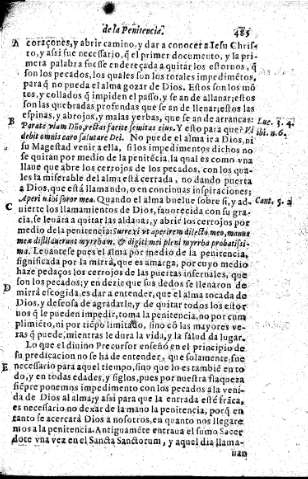 de la Penitencia. 485
A coraçones, y abrir camino, y dar a conocer a Iesu Chris-
to, y assi fue necessario, q̃ el primer documento, y la pri-
mera palabra fuesse endereçada a quitar los estoruos, q̃
son los pecados, los quales son los totales impedimẽtos,
para q̃ no pueda el alma gozar de Dios. Estos son los mõ-
tes, y collados q̃ impiden el passo, y se an de allanar; estos
son las quebradas profundas que se an de llenar; estos las
espinas, y abrojos, y malas yerbas, que se an de arrancar: Luc. 3. 4.
B Parate viam Dño, rectas facite semitas eius. Y esto para que? Vi Ibi. n. 6.
debit omnis caro salutare Dei. No puede el alma ir a Dios, ni
su Magestad venir a ella, si los impedimentos dichos no
se quitan por medio de la penitẽcia, la qual es como vna
llaue que abre los cerrojos de los pecados, con los qua-
les la miserable del alma està cerrada, no dando puerta
a Dios, que està llamando, o en continuas inspiraciones
Aperi mihi soror mea. Quando el alma buelue sobre si, y ad- Cant. 5. 2
C uierte los llamamientos de Dios, fauorecida con su gra-
cia, se leuãra a quitar las aldauas, y abrir los cerrojos por
medio de la penitencia: Surrexi vt aperirem dilecto meo, manus
meæ distillauerunt myrrham, & digiti mei pleni myrrha probatissi-
ma. Leuantese pues el alma por medio de la penitencia,
significada por la mirra, que es amarga, por cuyo medio
haze pedaços los cerrojos de las puertas infernales, que
son los pecados; y en dezir que sus dedos se llenaron de
D mirra escogida, es dar a entender, que el alma tocada de
Dios, y deseosa de agradarle, y de quitar todos los estor
uos q̃ le pueden impedir, toma la penitencia, no por cum
plimiẽto, ni por tiẽpo limitado, sino cõ las mayores ve-
ras q̃ puede, mientras le dura la vida, y la salud da lugar.
Lo que el diuino Precursor enseñò en el principio de
su predicacion no se ha de entender, que solamente fue
E necessario para aquel tiempo, sino que lo es tambiẽ en to
do, y en todas edades, y siglos, pues por nuestra flaqueza
siẽpre ponemos impedimento con los pecados a la veni-
da de Dios al alma; y assi para que la entrada estè frãca,
es necessario no dexar de la mano la penitencia, porq̃ en
tanto se acercarà Dios a nosotros, en quanto nos llegare
mos a la penitencia. Antiguamẽte entraua el sumo Sacer
dote vna vez en el Sancta Sanctorum, y aquel dia llama-
uan